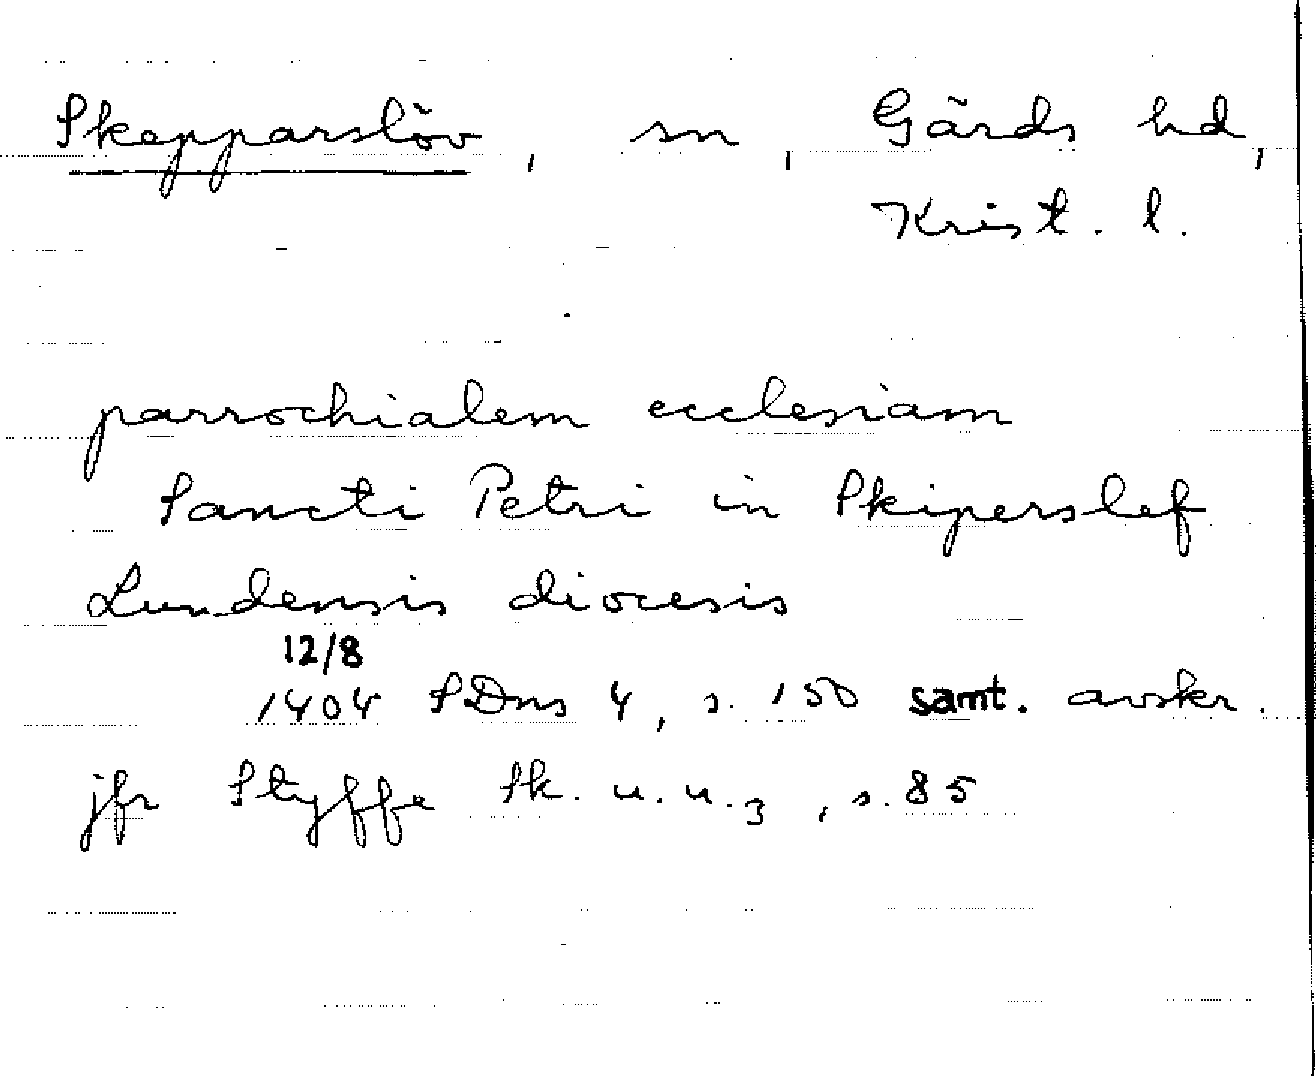 Skepparslöv, sn, Gärds hd,
Krist. l.
parrochialem ecclesiam
Sancti Petri in Skiperslef
Lundensis diocesis
12/8
1404 SDns 4, s. 150 samt. avskr.
jfr Styffe Sk. u. u. 3, s. 85